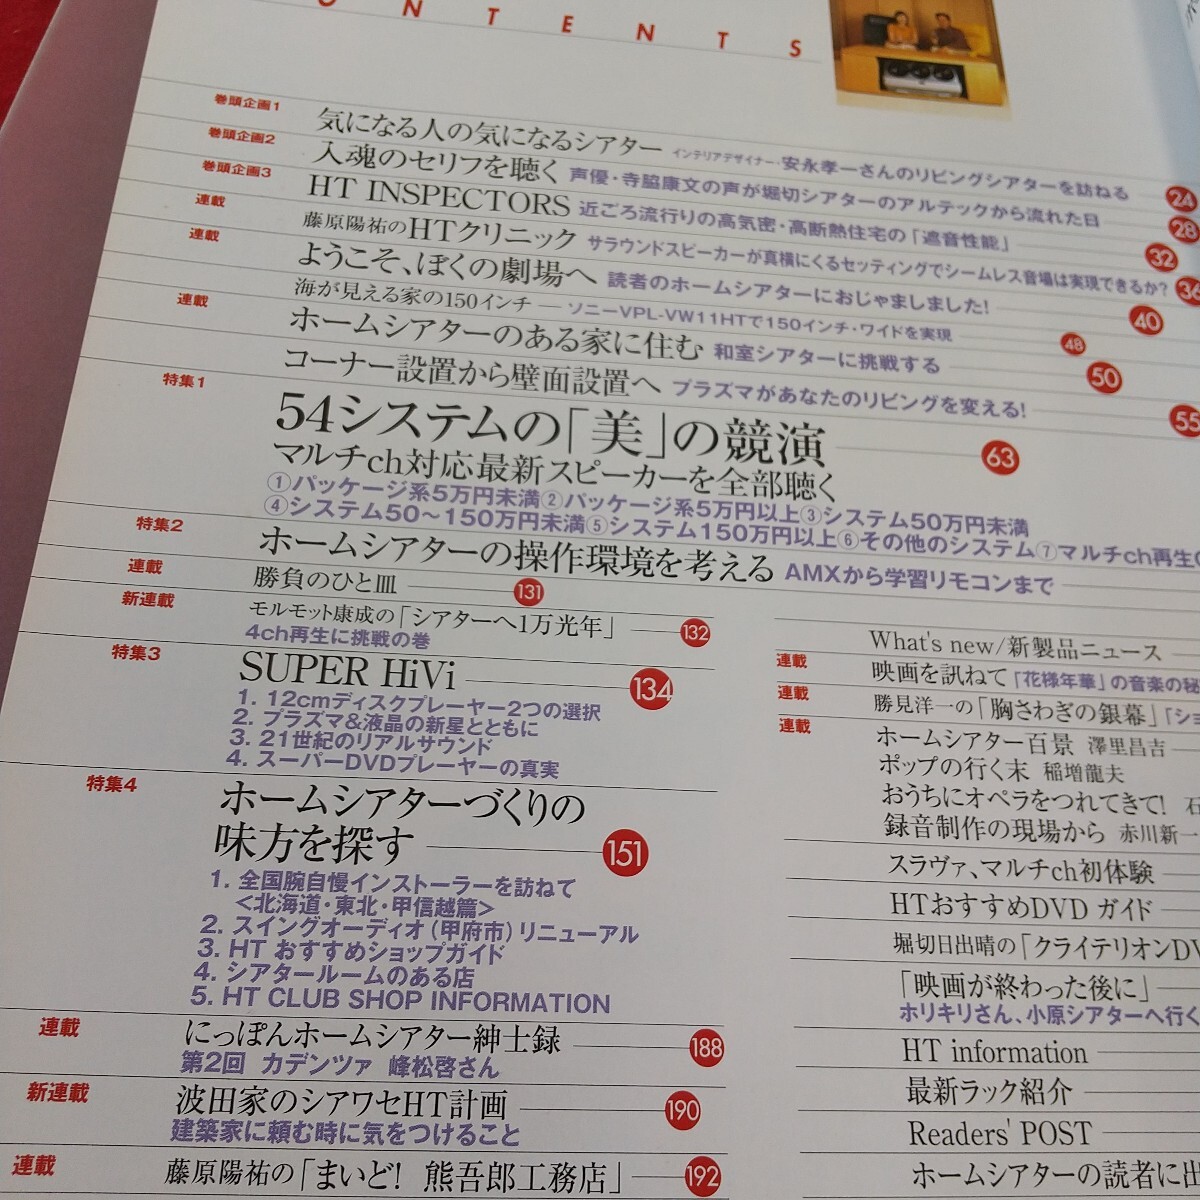 ONTENTS
巻頭企画1
気になる人の気になるシアター インテリアデザイナー・安永孝一さんのリビングシアターを訪ねる 24
巻頭企画2
入魂のセリフを聴く 声優・寺脇康文の声が堀切シアターのアルテックから流れた日 28
巻頭企画3
HT INSPECTORS 近ごろ流行りの高気密・高断熱住宅の「遮音性能」 32
連載
藤原陽祐のHTクリニック サラウンドスピーカーが真横にくるセッティングでシームレス音場は実現できるか? 36
連載
ようこそ、ぼくの劇場へ 読者のホームシアターにおじゃましました! 40
海が見える家の150インチ ソニーVPL-VW11HTで150インチ・ワイドを実現 48
連載
ホームシアターのある家に住む 和室シアターに挑戦する 50
コーナー設置から壁面設置へ プラズマがあなたのリビングを変える! 55
特集1
54システムの「美」の競演 63
マルチch対応最新スピーカーを全部聴く
①パッケージ系5万円未満②パッケージ系5万円以上③システム50万円未満
④システム50〜150万円未満⑤システム150万円以上⑥その他のシステム⑦マルチch再生
特集2
ホームシアターの操作環境を考える AMXから学習リモコンまで
連載
勝負のひと皿 131
新連載
モルモット康成の「シアターへ1万光年」 132
4ch再生に挑戦の巻
特集3
SUPER HiVi 134
1. 12cmディスクプレーヤー2つの選択
2. プラズマ&液晶の新星とともに
3. 21世紀のリアルサウンド
4. スーパーDVDプレーヤーの真実
特集4
ホームシアターづくりの
味方を探す 151
1. 全国腕自慢インストーラーを訪ねて
<北海道・東北・甲信越篇>
2. スイングオーディオ(甲府市)リニューアル
3. HT おすすめショップガイド
4. シアタールームのある店
5. HT CLUB SHOP INFORMATION
連載
にっぽんホームシアター紳士録 188
第2回 カデンツァ 峰松啓さん
新連載
波田家のシアワセHT計画 190
建築家に頼む時に気をつけること
連載
藤原陽祐の「まいど! 熊吾郎工務店」 192
What's new/新製品ニュース
連載
映画を訊ねて「花様年華」の音楽の秘
連載
勝見洋一の「胸さわぎの銀幕」「ショ
連載
ホームシアター百景 澤里昌吉
ポップの行く末 稲増龍夫
おうちにオペラをつれてきて! 石
録音制作の現場から 赤川新一
スラヴァ、マルチch初体験
HTおすすめDVD ガイド
堀切日出晴の「クライテリオンDV
「映画が終わった後に」
ホリキリさん、小原シアターへ行く
HT information
最新ラック紹介
Readers' POST
ホームシアターの読者に出